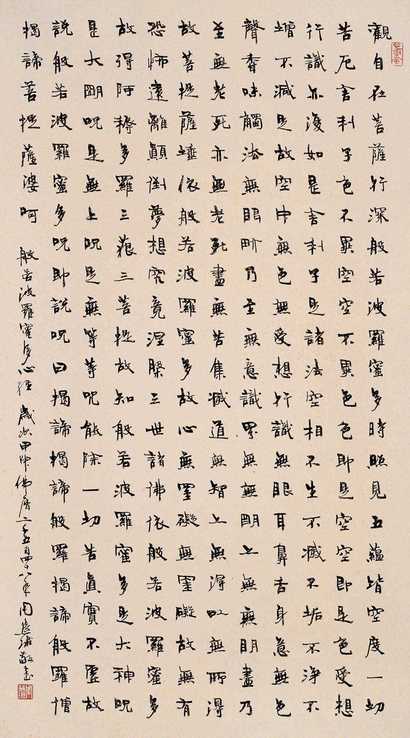 觀自在菩薩行深般若波羅蜜多時照見五蘊皆空度一切
苦厄舍利子色不異空空不異色色即是空空即是色受想
行識亦復如是舍利子是諸法空相不生不滅不垢不淨不
增不減是故空中無色無受想行識無眼耳鼻舌身意無色
聲香味觸法無眼界乃至無意識界無無明亦無無明盡乃
至無老死亦無老死盡無苦集滅道無智亦無得以無所得
故菩提薩埵依般若波羅蜜多故心無罣礙無罣礙故無有
恐怖遠離顛倒夢想究竟涅槃三世諸佛依般若波羅蜜多
故得阿耨多羅三藐三菩提故知般若波羅蜜多是大神呪
是大明呪是無上呪是無等等呪能除一切苦真實不虛故
說般若波羅蜜多呪即說呪曰揭諦揭諦般羅揭諦般羅僧
揭諦菩提薩婆呵
般若波羅蜜多心經 歲次甲申佛曆二五四八年周敬書